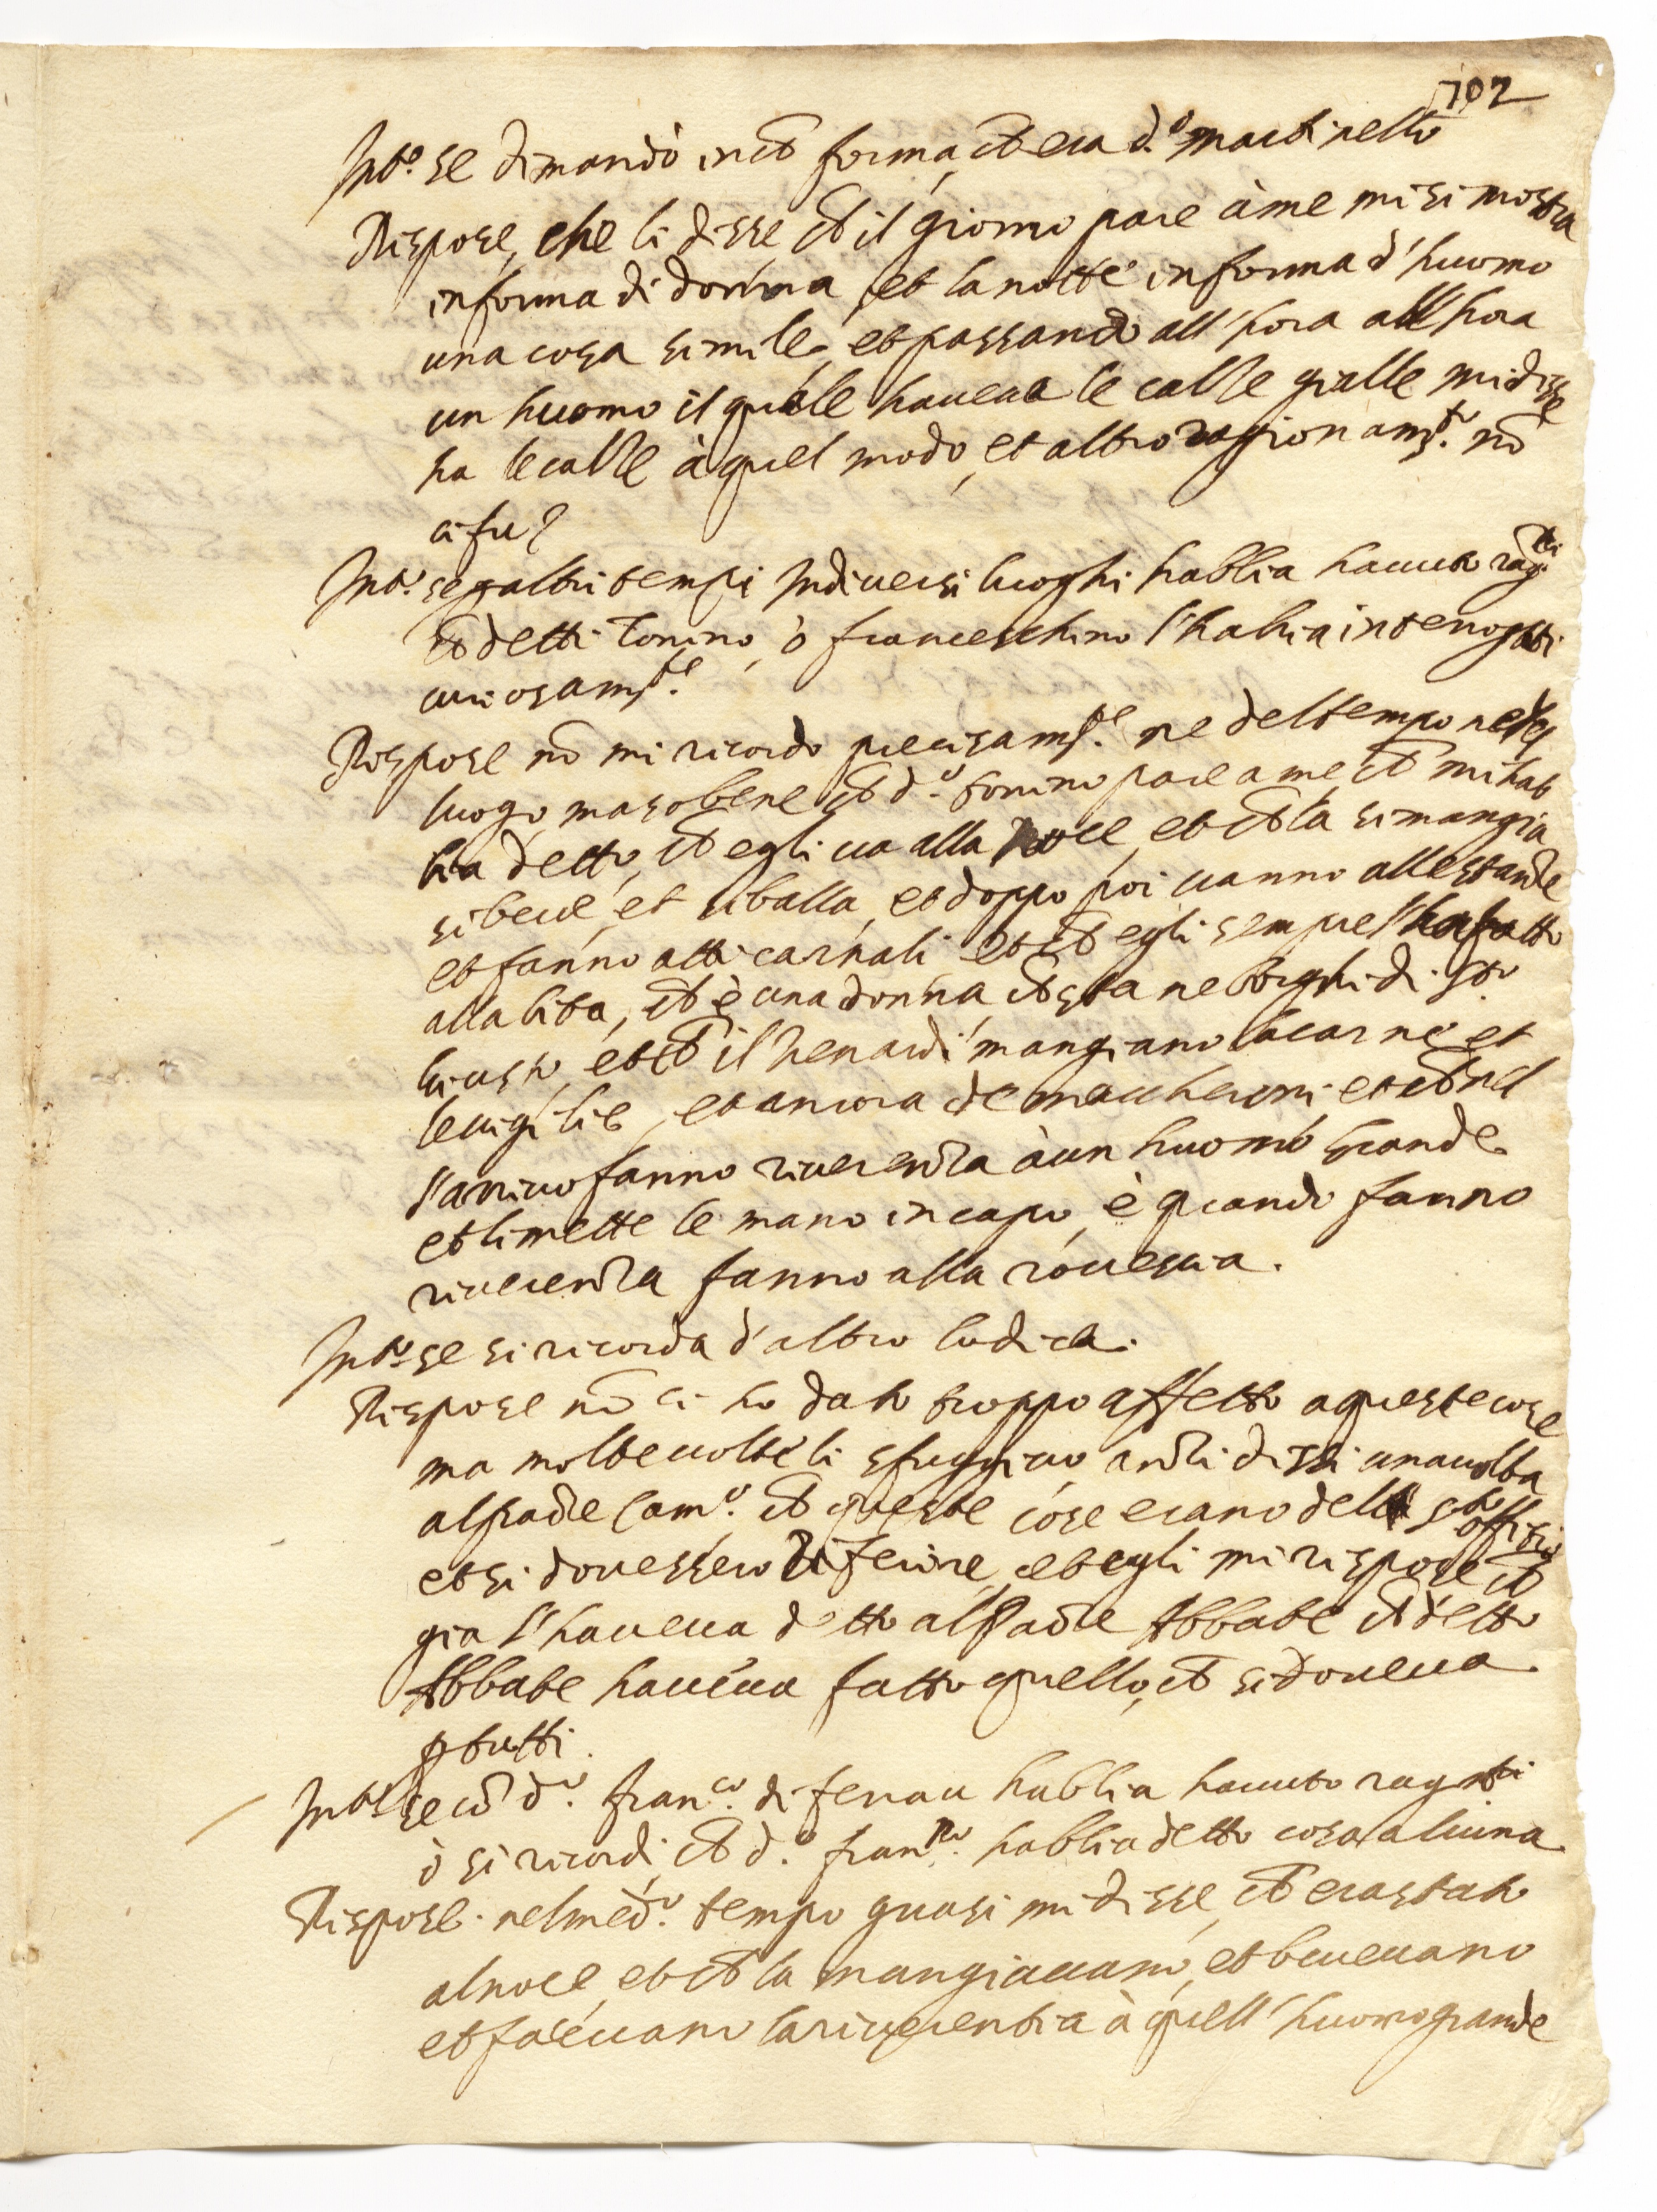 702
Int.o se dimandò in ch forma, ch era d.o martinello
Rispose, che li disse ch il giorno pare à me mi si mostra
in forma di donna, et la notte in forma d'huomo
una cosa simile, et passando all'hora all hora
un huomo il quale haueua le calze gialle mi disse
ha le calze à quel modo, et altro ragionam.to nō
ci fu
Int.o se p altri tempi in diuersi luoghi habbia hauuto rag.ti
ch detti Tonino, ò franceschino l'habia interrogati
curiosam.te
Rispose nō mi ricordo precisam.te ne del tempo ne del
luogo, ma so bene ch d.o Tonino pare a me, ch mi hab
bia detto, ch egli ua alla noce, et ch la si mangia
si beue, et si balla, et doppo poi uanno alle stanze
et fanno atti carnali et ch egli sempre l'ha fatto
alla lita, ch è una donna, ch sta ne borghi di s.to
et ch il Venardi mangiano la carne et
le uigilie, et ancora de maccheroni et ch nel
l'arriuo fanno riuerenza à un huomo grande
et li mette le mano in capo, è quando fanno
riuerenza fanno alla rouescia.
Int.o se si ricorda d'altro lo dica.
Rispose nō ci ho dato troppo affetto a queste cose
ma molte uolte li sfuggiuo anzi dissi una uolta
al padre Cam.o ch queste cose erano del s.to offitio
et si douessero riferire, et egli mi rispose ch
gia l'haueua detto al Padre Abbate ch detto
Abbate haueua fatto quello, ch si doueua
p tutti.
Int.o se cō d.o fran.co di ferrau habbia hauuto rag.ti
ò si ricordi, ch d.o fran.co habbia detto cosa alcuna
Rispose. nel med.o tempo quasi mi disse, ch era stato
al noce, et ch la mangiauano, et beueuano
et faceuano la riuerentia à quell'huomo grande